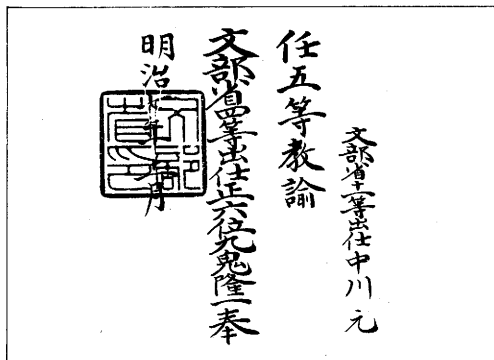 文部省十一等出仕中川元
任五等教諭
文部省四等出仕正六位九鬼隆一奉
明治年月
文部省印